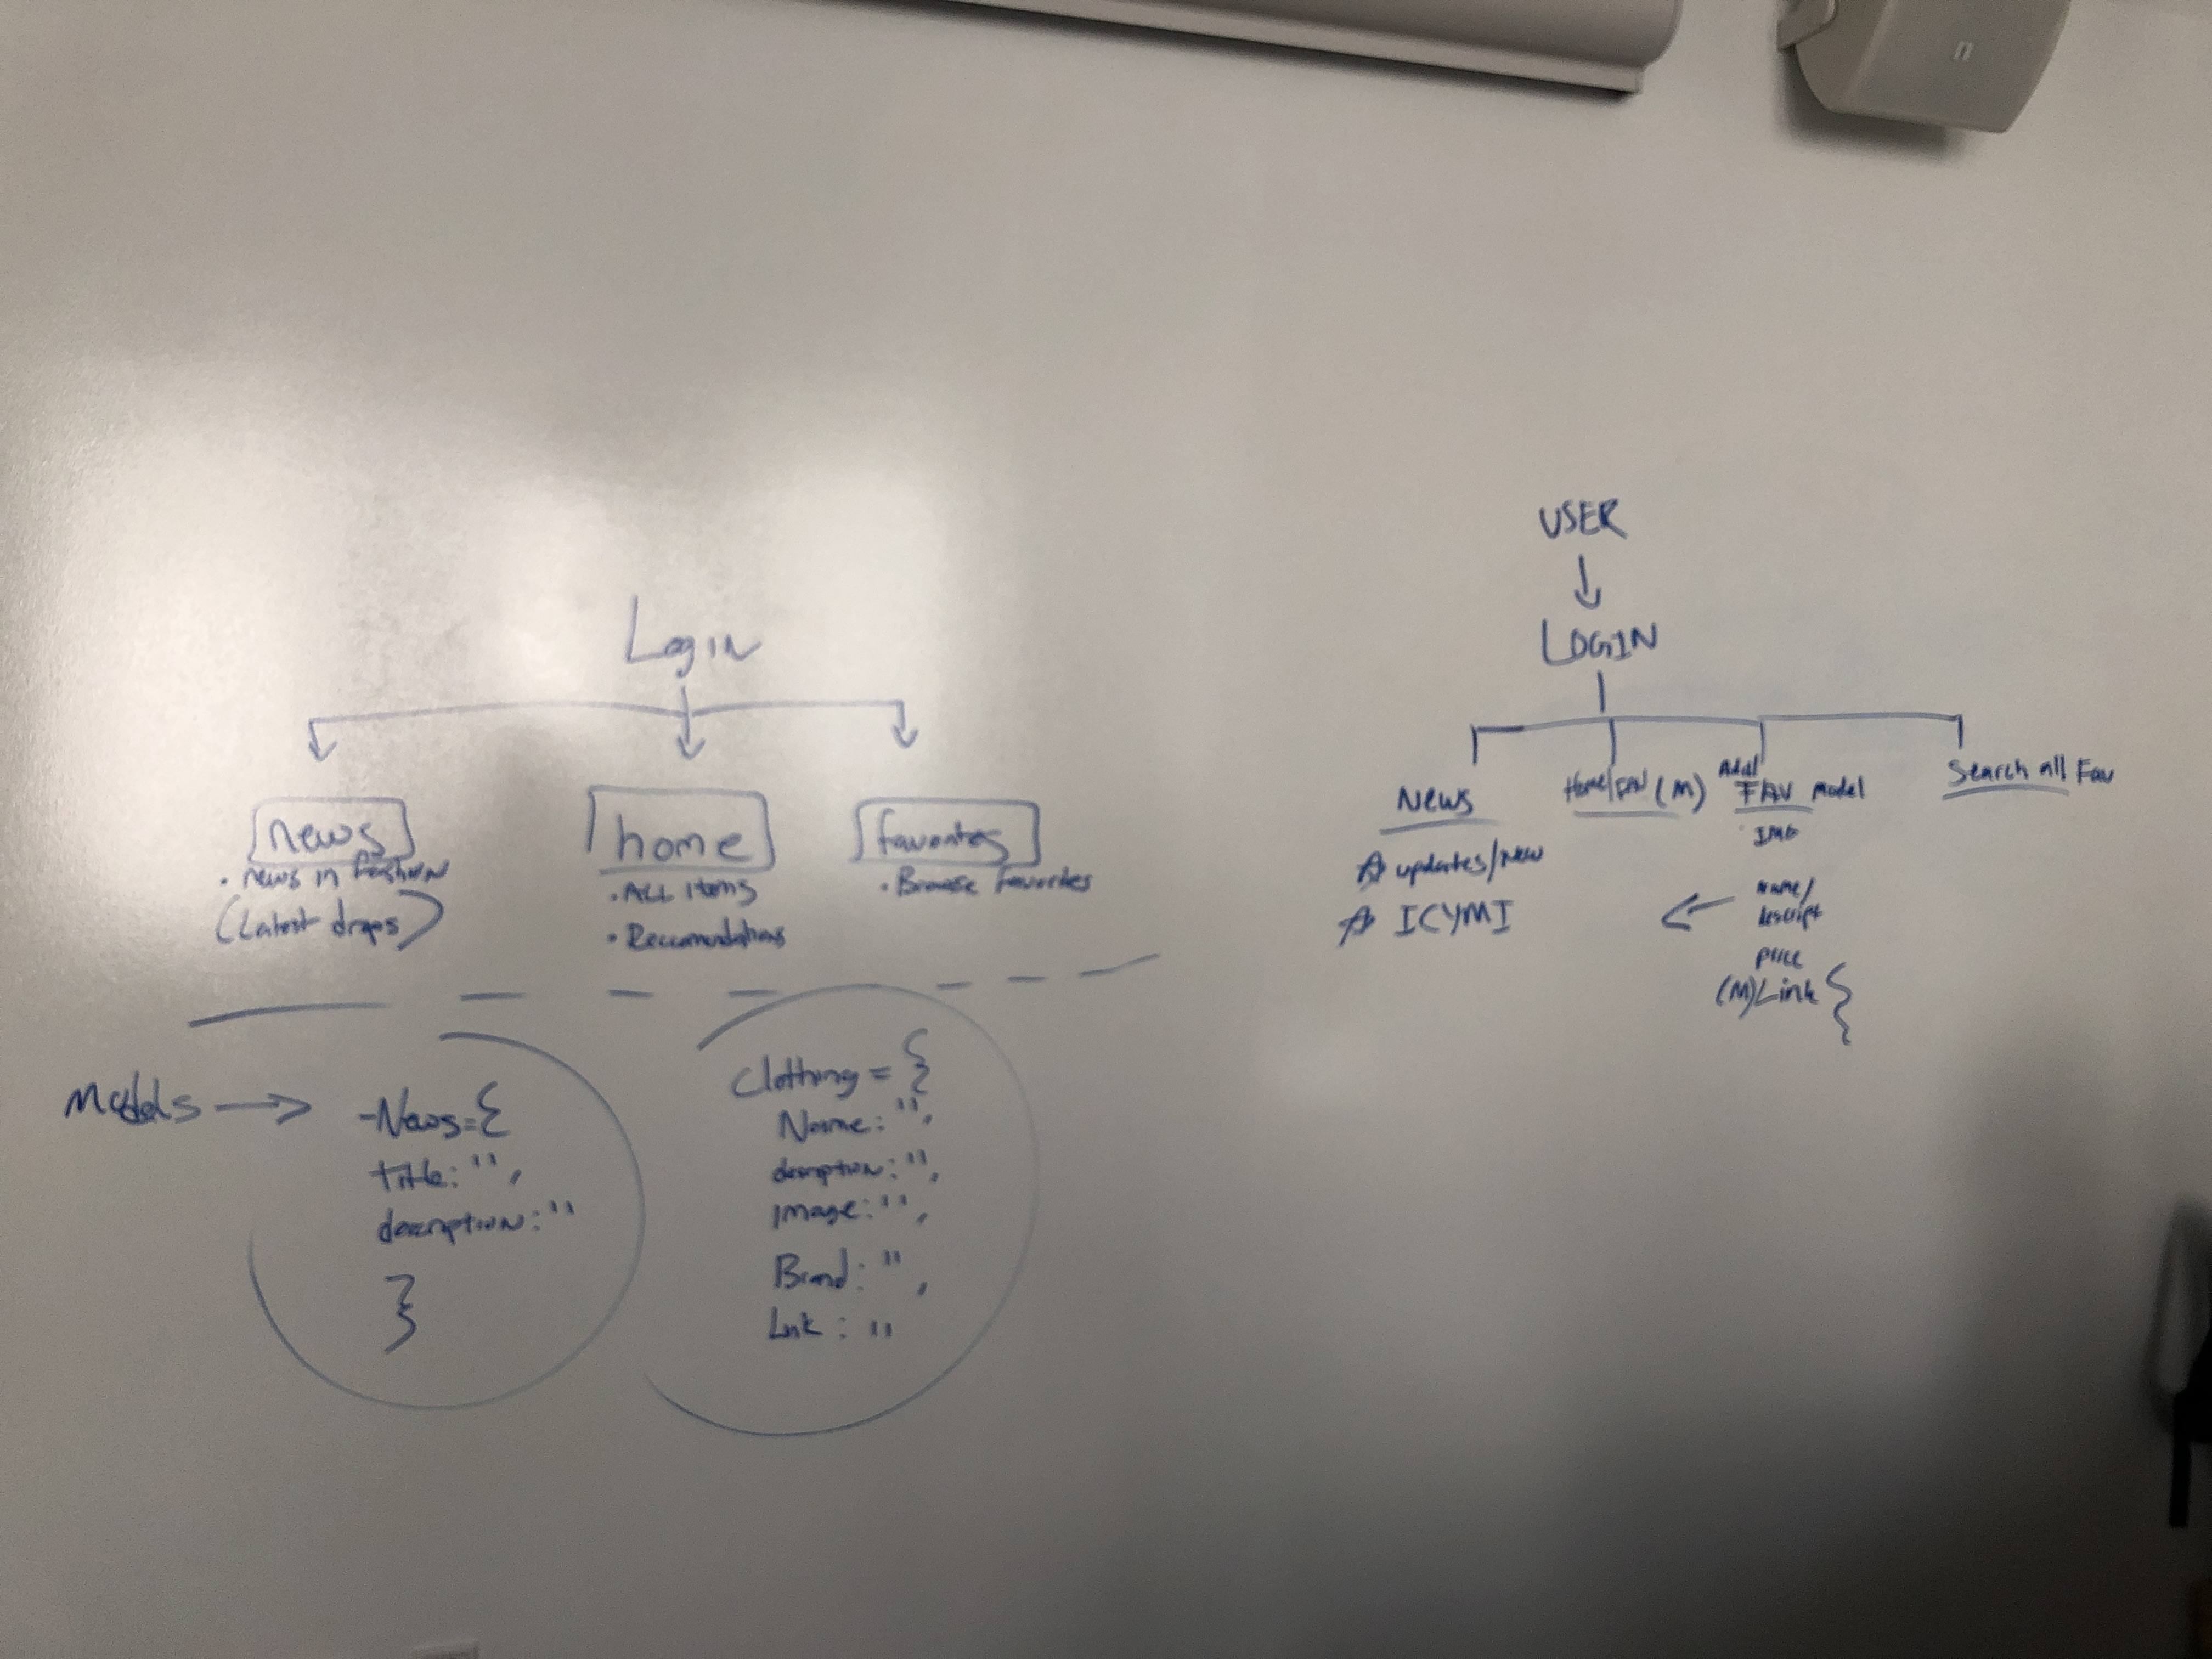 Login
news
• news in fashion
(Latest drops)
home
• ALL items
• Reccomendations
favorites
• Browse favorites
Models →
-News={
title: '',
description: ''
}
Clothing = {
Name: '',
description: '',
image: '',
Brand: '',
Link: ''
USER
LOGIN
News
updates/new
ICYMI
Home/FAV (M)
Add
FAV model
IMG
name/
descript
price
(M) Link {
Search all Fav